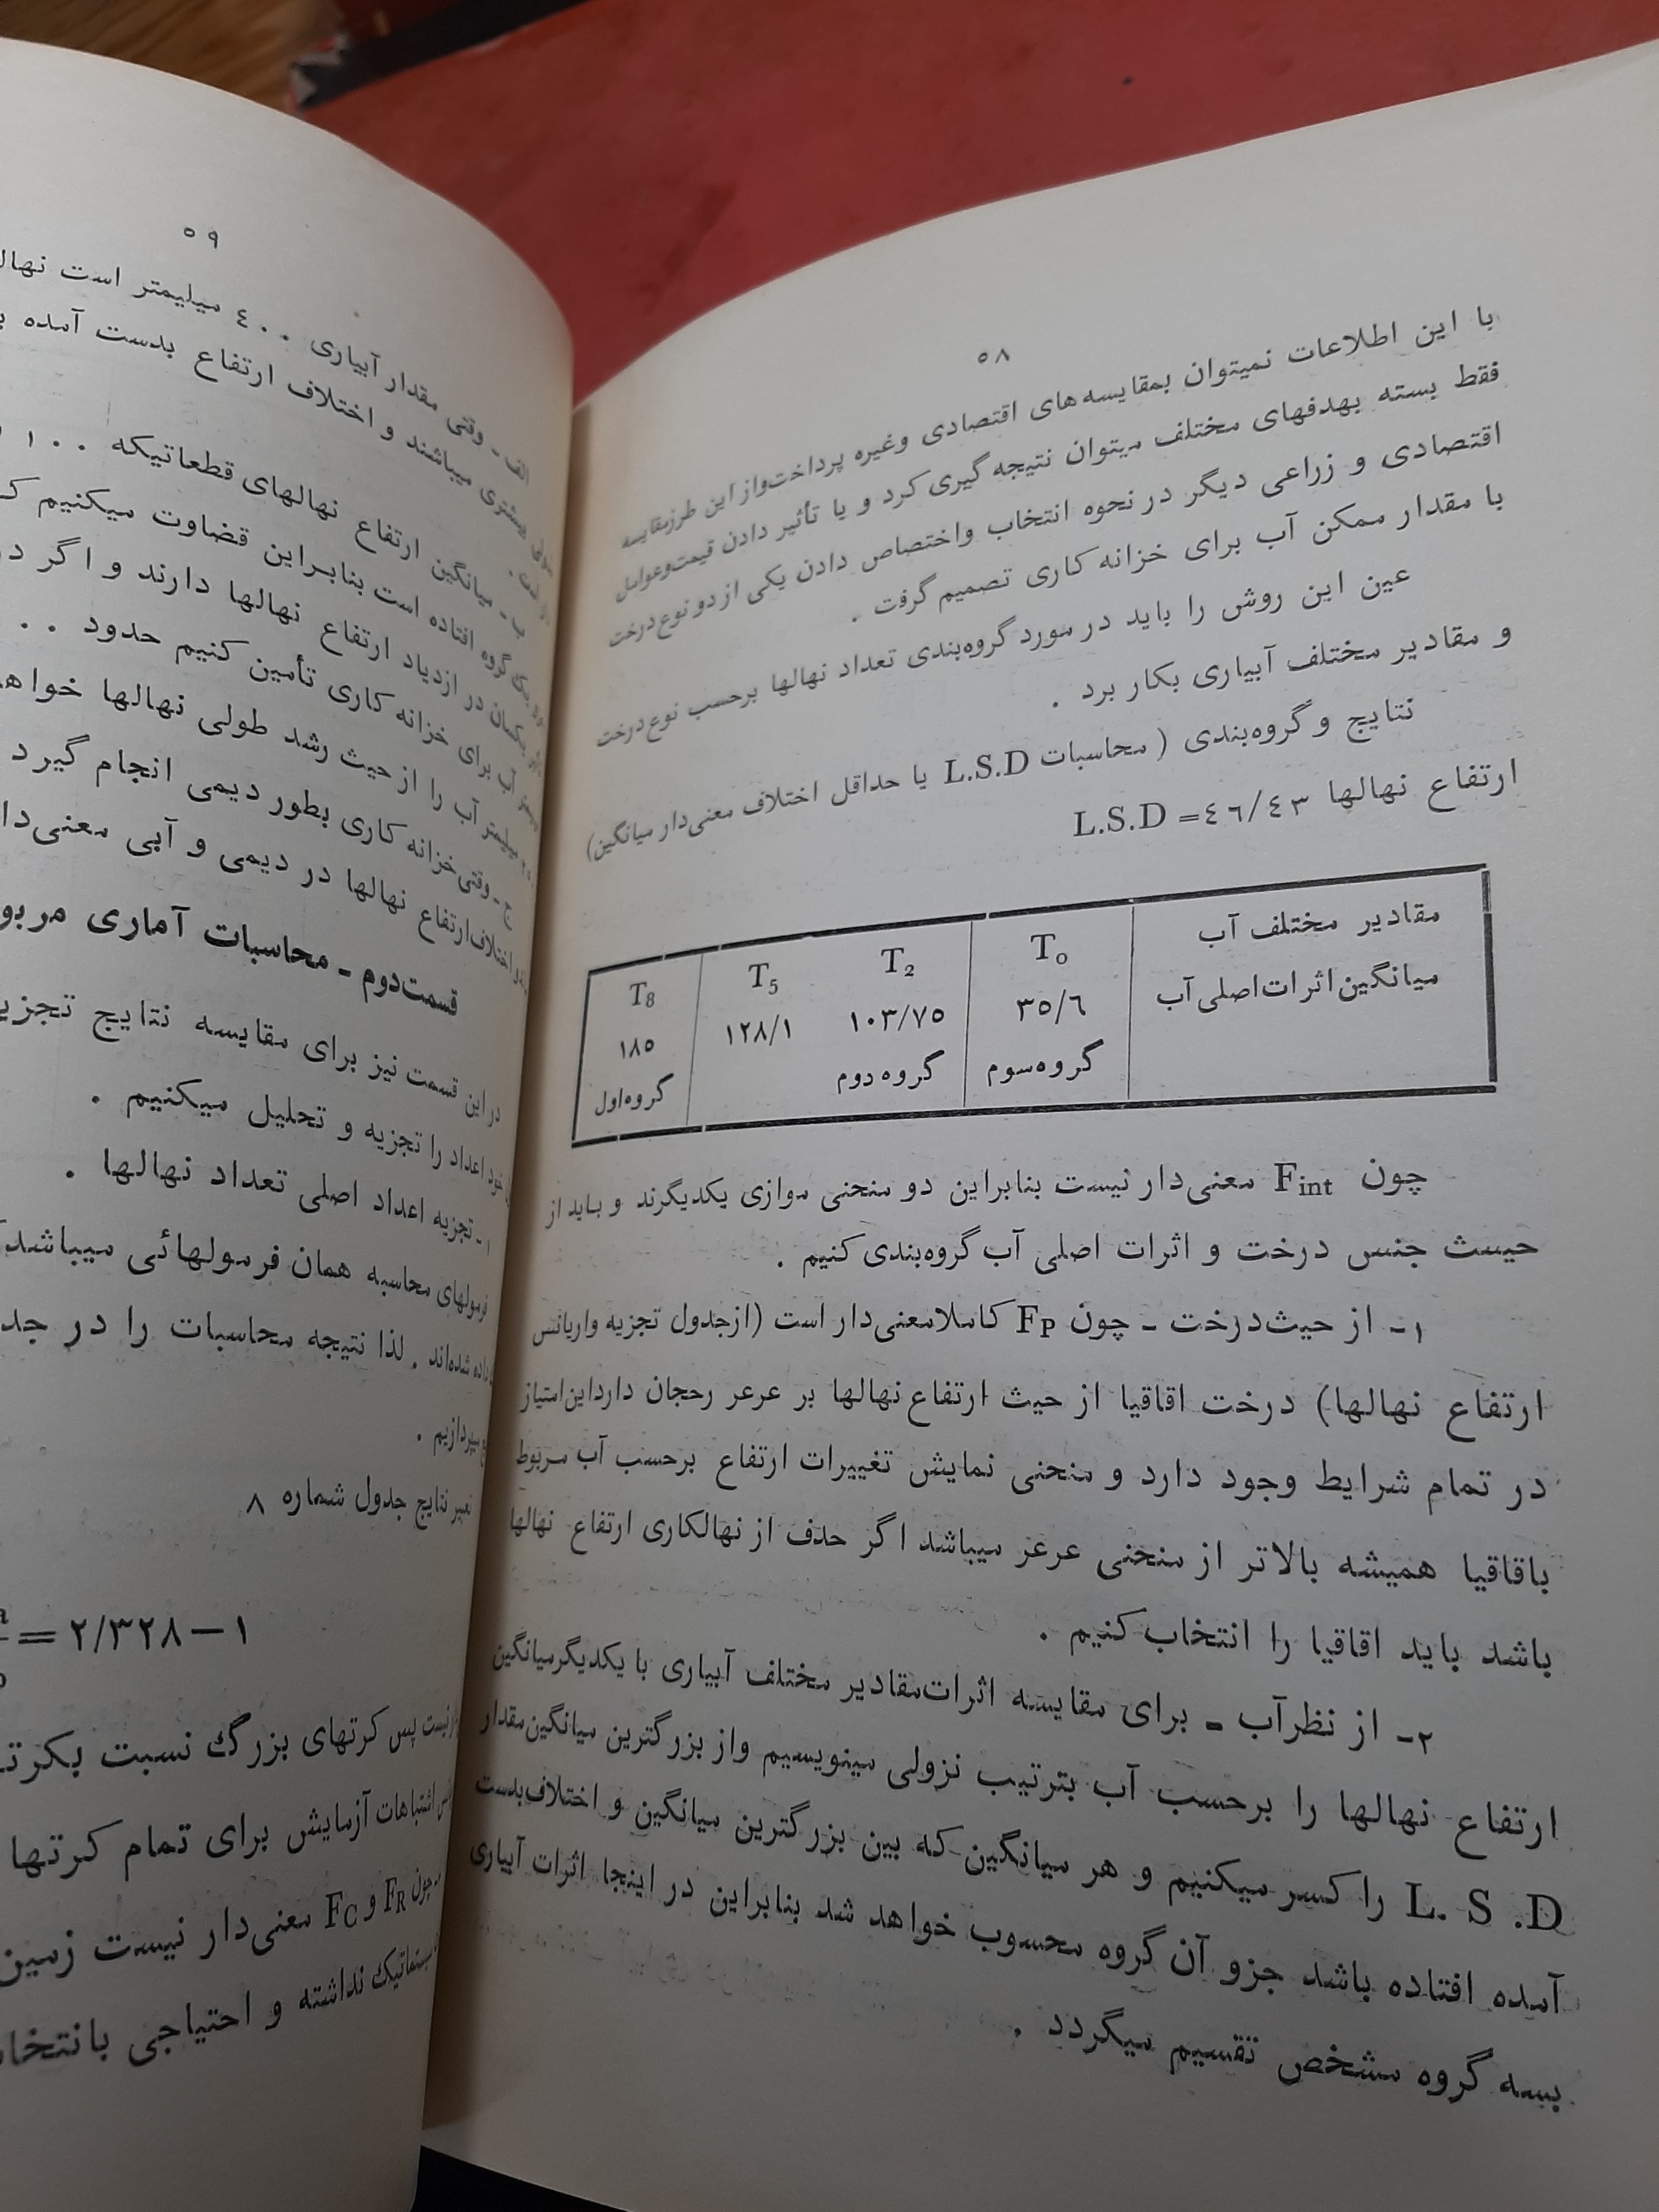 ۵۸
با این اطلاعات نمیتوان بمقایسه‌های اقتصادی وغیره پرداخت‌واز این طرزمقایسه
فقط بسته بهدفهای مختلف میتوان نتیجه گیری کرد و یا تأثیر دادن قیمت‌وعوامل
اقتصادی و زراعی دیگر در نحوه انتخاب واختصاص دادن یکی از دو نوع درخت
با مقدار ممکن آب برای خزانه کاری تصمیم گرفت .
عین این روش را باید در مورد گروه‌بندی تعداد نهالها برحسب نوع درخت
و مقادیر مختلف آبیاری بکار برد .
نتایج و گروه‌بندی ( محاسبات L.S.D یا حداقل اختلاف معنی‌دار میانگین)
ارتفاع نهالها L.S.D =٤٦/٤٣
مقادیر مختلف آب T₀ T₂ T₅ T₈
میانگین اثرات اصلی آب ۳۵/٦ ۱۰۳/۷۵ ۱۲۸/۱ ۱۸۵
گروه سوم گروه دوم گروه اول
چون Fint معنی‌دار نیست بنابراین دو منحنی موازی یکدیگرند و باید از
حیسث جنس درخت و اثرات اصلی آب گروه‌بندی کنیم .
۱- از حیث‌درخت - چون FP کاملامعنی‌دار است (ازجدول تجزیه واریانس
ارتفاع نهالها) درخت اقاقیا از حیث ارتفاع نهالها بر عرعر رحجان دارداین‌امتیاز
در تمام شرایط وجود دارد و منحنی نمایش تغییرات ارتفاع برحسب آب مربوط
باقاقیا همیشه بالاتر از منحنی عرعر میباشد اگر حذف از نهالکاری ارتفاع نهالها
باشد باید اقاقیا را انتخاب کنیم .
۲- از نظرآب - برای مقایسه اثرات‌مقادیر مختلف آبیاری با یکدیگرمیانگین
ارتفاع نهالها را برحسب آب بترتیب نزولی مینویسیم واز بزرگترین میانگین‌مقدار
L. S .D را کسر میکنیم و هر میانگین که بین بزرگترین میانگین و اختلاف‌بدست
آمده افتاده باشد جزو آن گروه محسوب خواهد شد بنابراین در اینجا اثرات آبیاری
بسه گروه مشخص تقسیم میگردد .
۵۹
الف - وقتی مقدار آبیاری ٤۰۰ میلیمتر است
بیشتری میباشند و اختلاف ارتفاع بدست آمده
ب - میانگین ارتفاع نهالهای قطعاتیکه ۱۰۰
یک گروه افتاده است بنابراین قضاوت میکنیم
یکسان در ازدیاد ارتفاع نهالها دارند و اگر
آب برای خزانه کاری تأمین کنیم حدود
میلیمتر آب را از حیث رشد طولی نهالها
ج - وقتی خزانه کاری بطور دیمی انجام گیرد
اختلاف‌ارتفاع نهالها در دیمی و آبی
قسمت‌دوم - محاسبات آماری
در این قسمت نیز برای مقایسه نتایج
اعداد را تجزیه و تحلیل میکنیم .
۱- تجزیه اعداد اصلی تعداد نهالها .
فرمولهای محاسبه همان فرمولهائی میباشد
داده شده‌اند . لذا نتیجه محاسبات را در
بپردازیم .
تعبیر نتایج جدول شماره ۸
= ۲/۳۲۸ — ۱
نیست پس کرتهای بزرگ نسبت
اشتباهات آزمایش برای تمام کرتها
چون FR و FC معنی‌دار نیست
سیستماتیک نداشته و احتیاجی